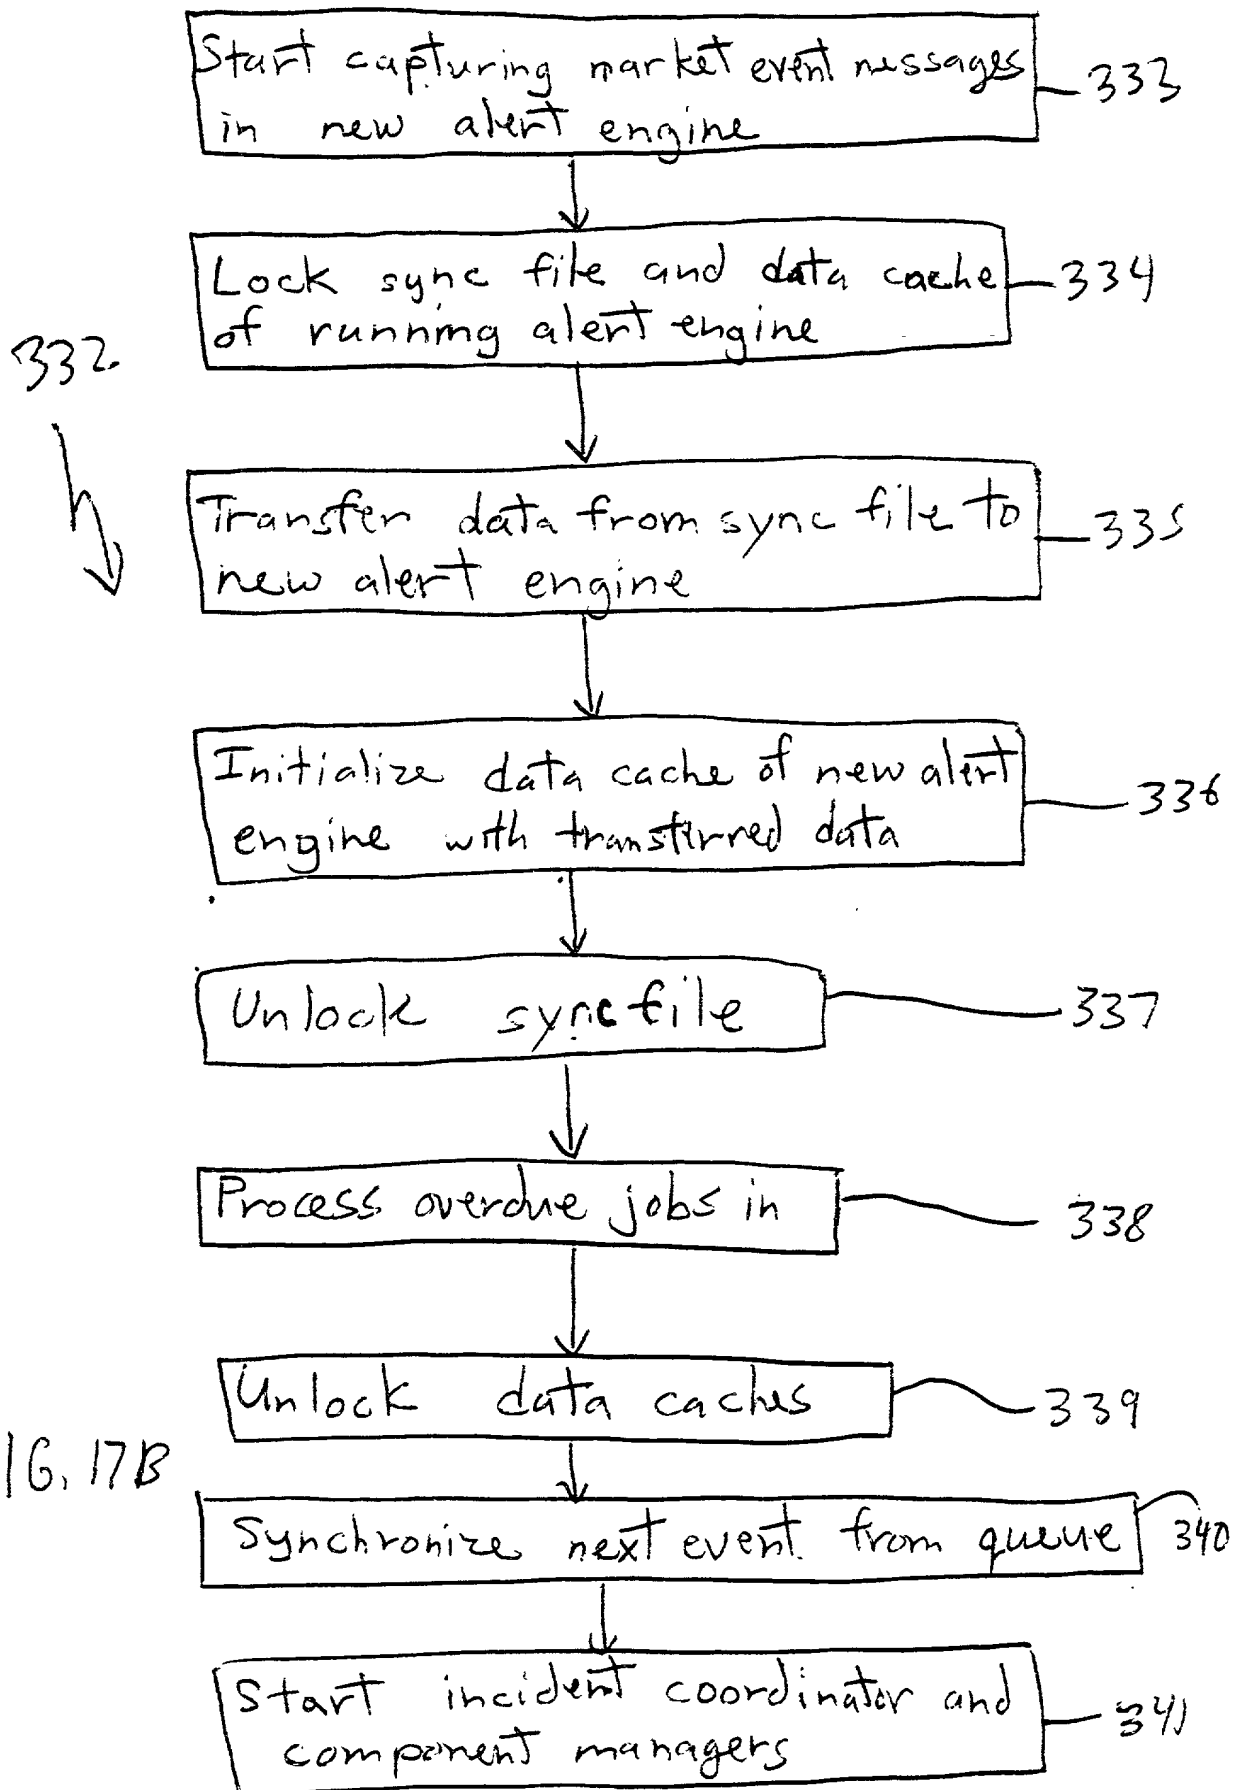 Start capturing market event messages
in new alert engine
333
Lock sync file and data cache
of running alert engine
334
332
Transfer data from sync file to
new alert engine
335
Initialize data cache of new alert
engine with transferred data
336
Unlock sync file
337
Process overdue jobs in
338
Unlock data caches
339
IG. 17B
Synchronize next event from queue
340
Start incident coordinator and
component managers
341